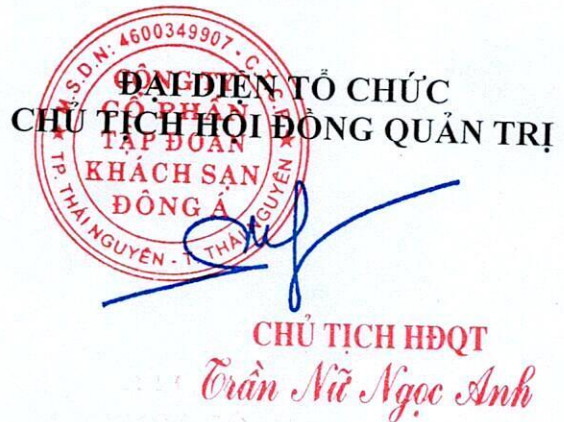 ĐẠI DIỆN TỔ CHỨC
CHỦ TỊCH HỘI ĐỒNG QUẢN TRỊ
M.S.D.N: 4600349907 - C.T.C.P
CÔNG TY
CỔ PHẦN
TẬP ĐOÀN
KHÁCH SẠN
ĐÔNG Á
TP. THÁI NGUYÊN - T. THÁI NGUYÊN
CHỦ TỊCH HĐQT
Trần Nữ Ngọc Anh